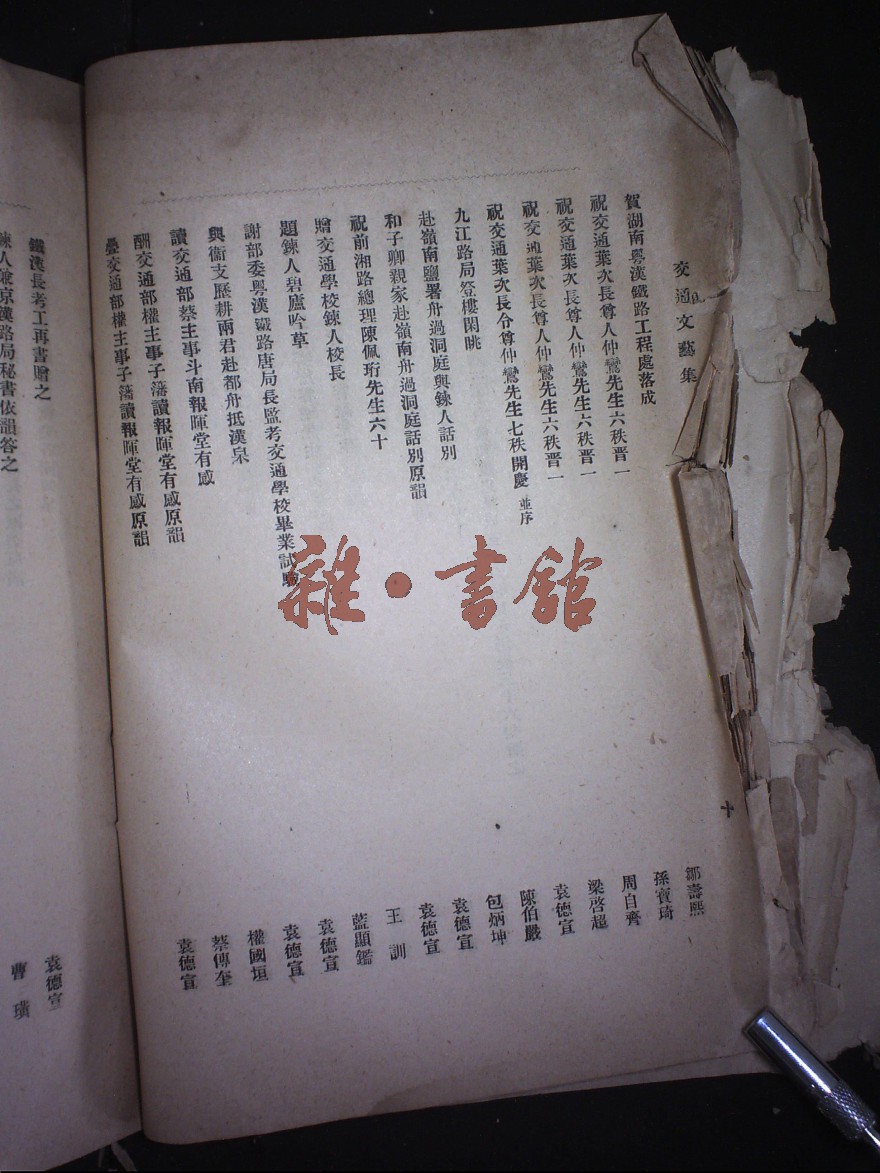 交通文藝集
十
賀湖南粵漢鐵路工程處落成
鄒壽熙
祝交通葉次長尊人仲鸞先生六秩晋一
孫寶琦
祝交通葉次長尊人仲鸞先生六秩晋一
周自齊
祝交通葉次長尊人仲鸞先生六秩晋一
梁啓超
祝交通葉次長令仲鸞先生七秩開慶 並序
袁德宣
九江路局登樓閑眺
陳伯嚴
赴嶺南鹽署舟過洞庭與鍊人話別
包炳坤
和子卿親家赴嶺南舟過洞庭話別原韻
袁德宣
祝前湘路總理陳佩珩先生六十
袁德宣
贈交通學校鍊人校長
王訓
題鍊人碧廬吟草
藍顯鑑
謝部委粵漢鐵路唐局長監考交通學校畢業試驗
袁德宣
與衞支歷耕兩君赴都舟抵漢皋
袁德宣
讀交通部蔡主事斗南報暉堂有感
權國垣
酬交通部權主事子藩讀報暉堂有感原韻
蔡傳奎
疊交通部權主事子藩讀報暉堂有感原韻
袁德宣
鐵漢長考工再書贈之
袁德宣
鍊人兼京漢路局秘書依韻答之
曹璜
雜·書館